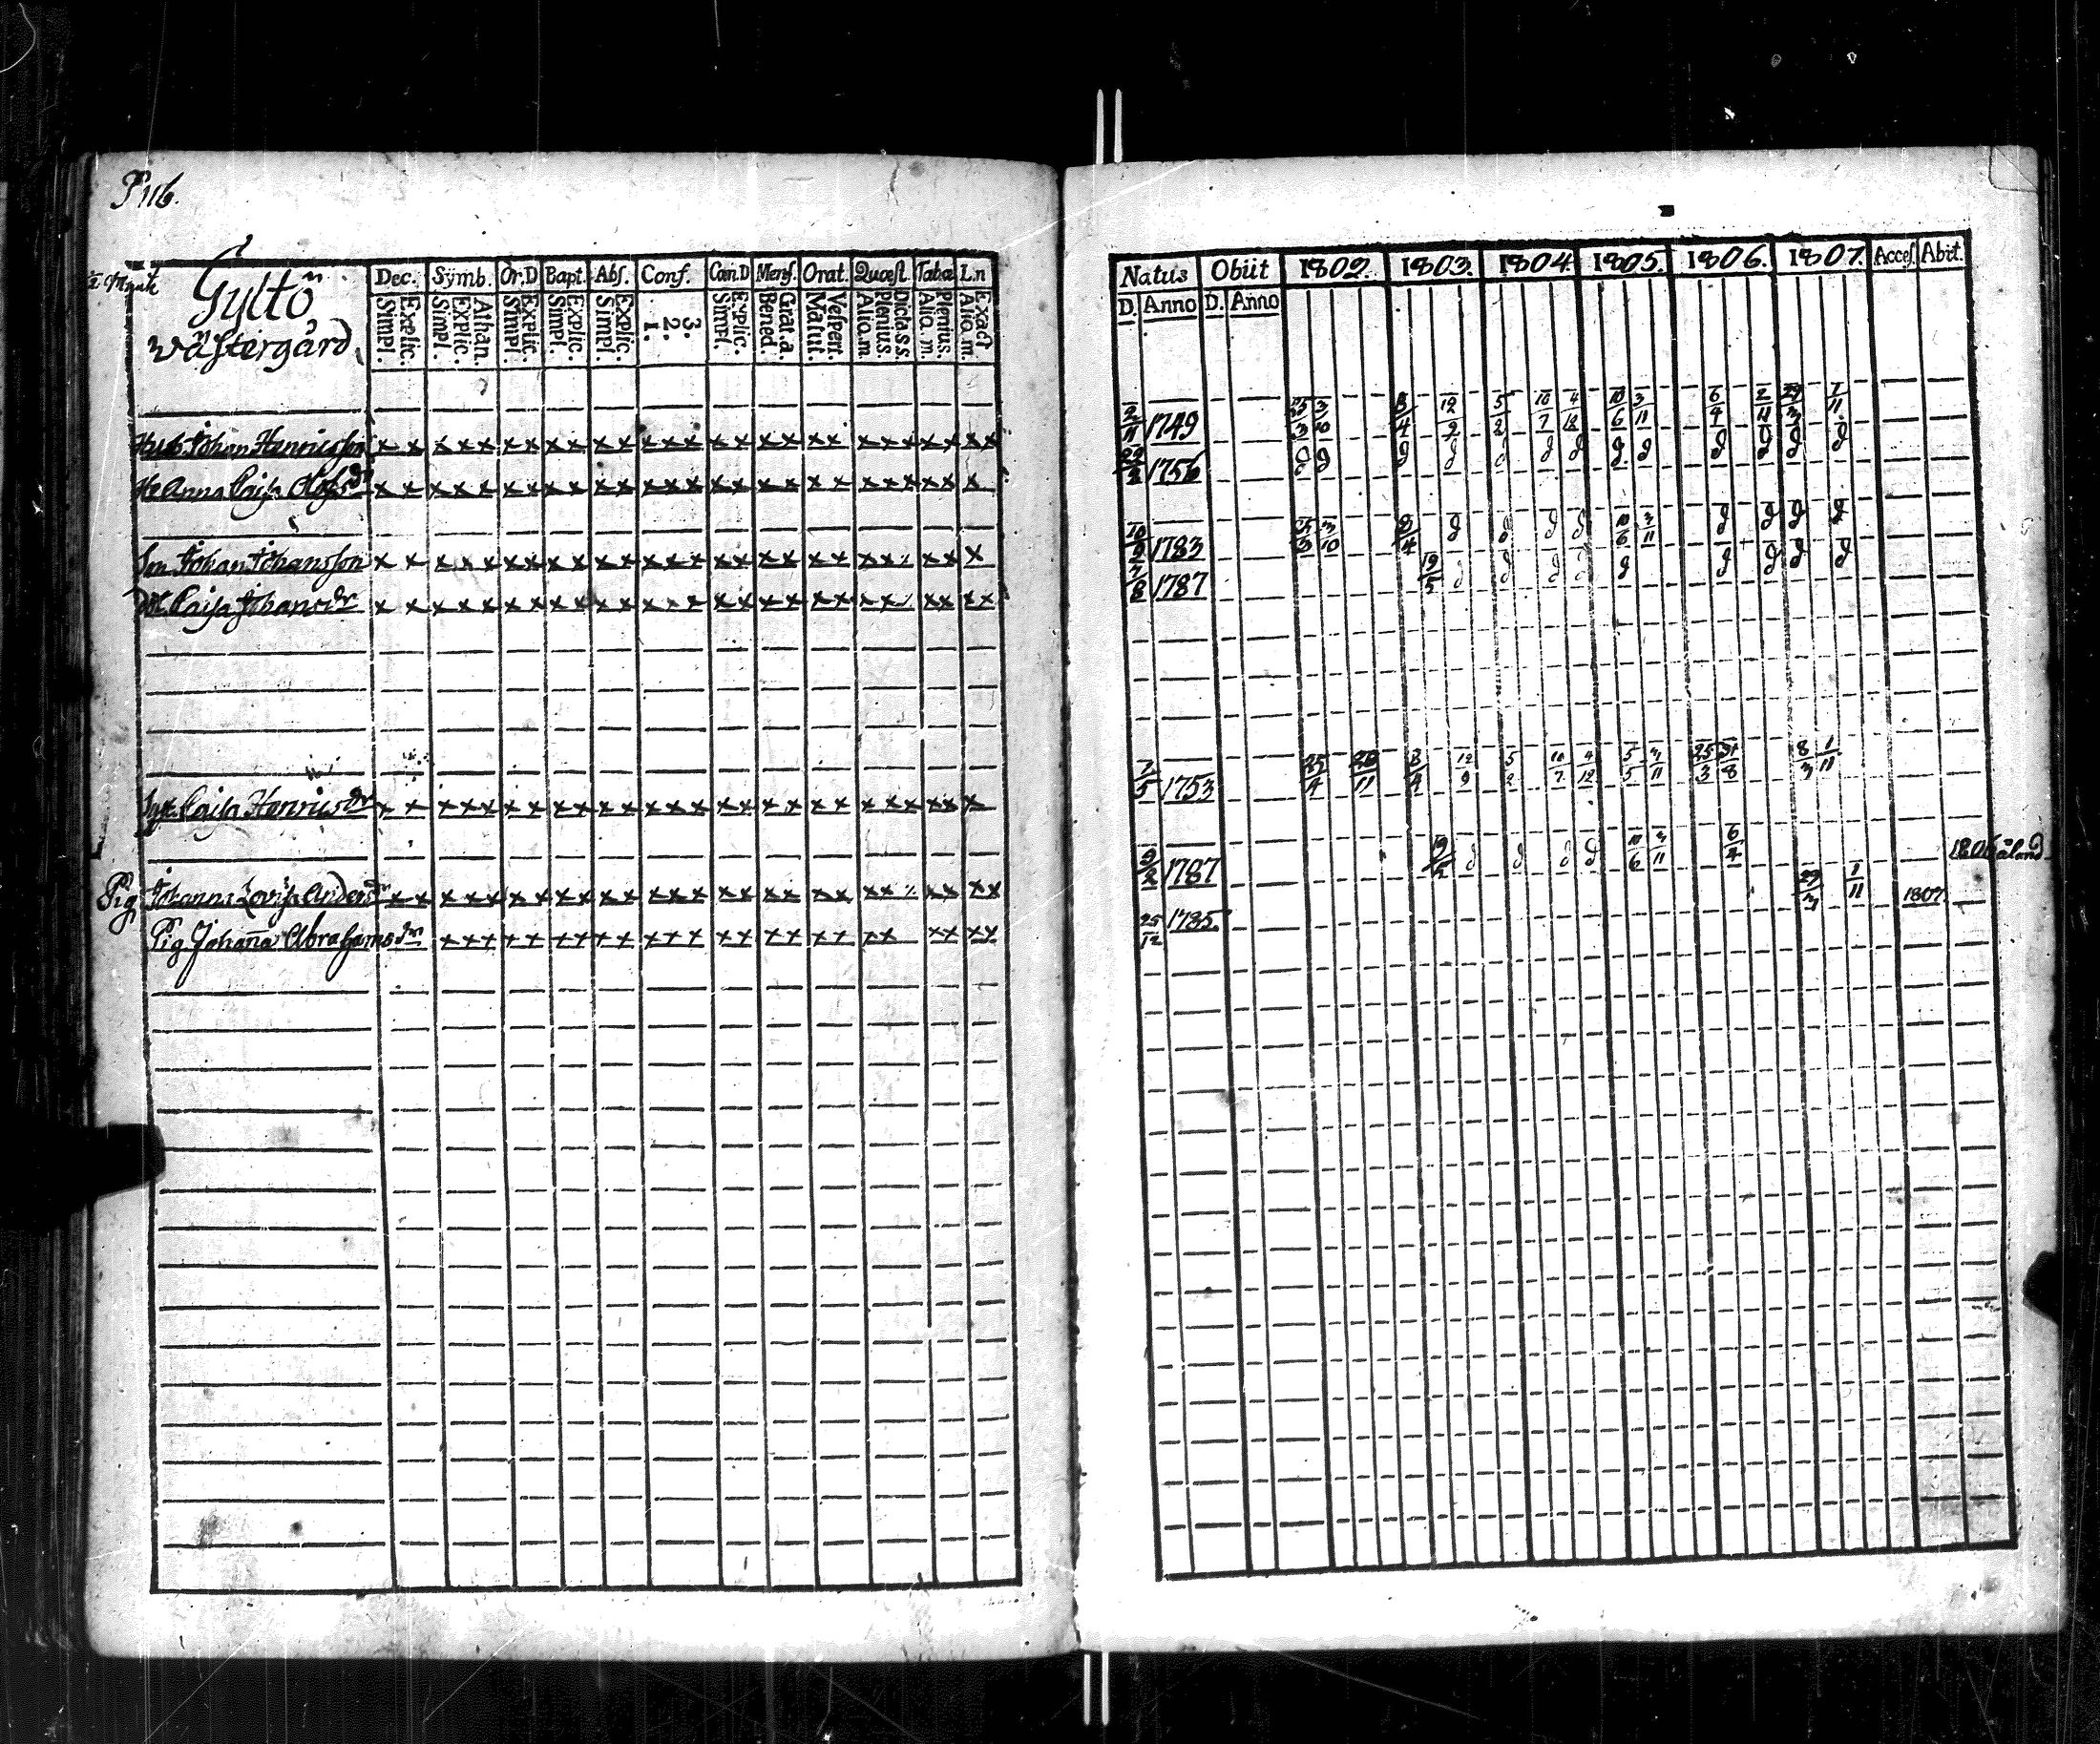 P 116.
Gyltö
Västergård
Dec. Symb. Or.D Bapt. Abs. Conf. Cœn.D Mens. Orat. Quæst. Tabæ L.n
Simpl. Explic. Simpl. Explic. Athan. Simpl. Explic. Simpl. Explic. Simpl. Explic. 1. 2. 3. Simpl. Explic. Bened. Grat.a. Matut. Vespert. Aliq.m. Plenius. Dicta.s.s. Aliq.m. Plenius. Aliq.m. Exact
Husb. Johan Henricsson x x x x x x x x x x x x x x x x x x x x x x x x x x x
H Anna Caisa Olofsdr x x x x x x x x x x x x x x x x x x x x x x x x x x
Son Johan Johansson x x x x x x x x x x x x x x x x x x x x x x x x x
Dot. Caisa Johansdr x x x x x x x x x x x x x x x x x x x x x x x x x x
Caisa Henricsdr x x x x x x x x x x x x x x x x x x x x x x x x x x
Pig Johanna Lovisa Andersdr x x x x x x x x x x x x x x x x x x x x x x x x x x
Pig Johana Abrahamsdr x x x x x x x x x x x x x x x x x x x x x x x x
Natus Obiit 1802. 1803. 1804. 1805. 1806. 1807. Accel. Abiit.
D. Anno D. Anno
2/11 1749 25/3 3/10 3/4 19/2 5/2 10/7 4/12 10/6 3/11 6/4 2/11 29/3 1/11
1756
1783 25/3 3/10 3/4 10/6 3/11
1787 19/5
7/5 1753 25/4 3/4 12/9 5/2 10/7 4/12 5/5 3/11 25/3 31/8 8/3 1/11
9/2 1787 10/6 3/11 6/4 1806 åland
25/12 1785. 29/3 1/11 1807